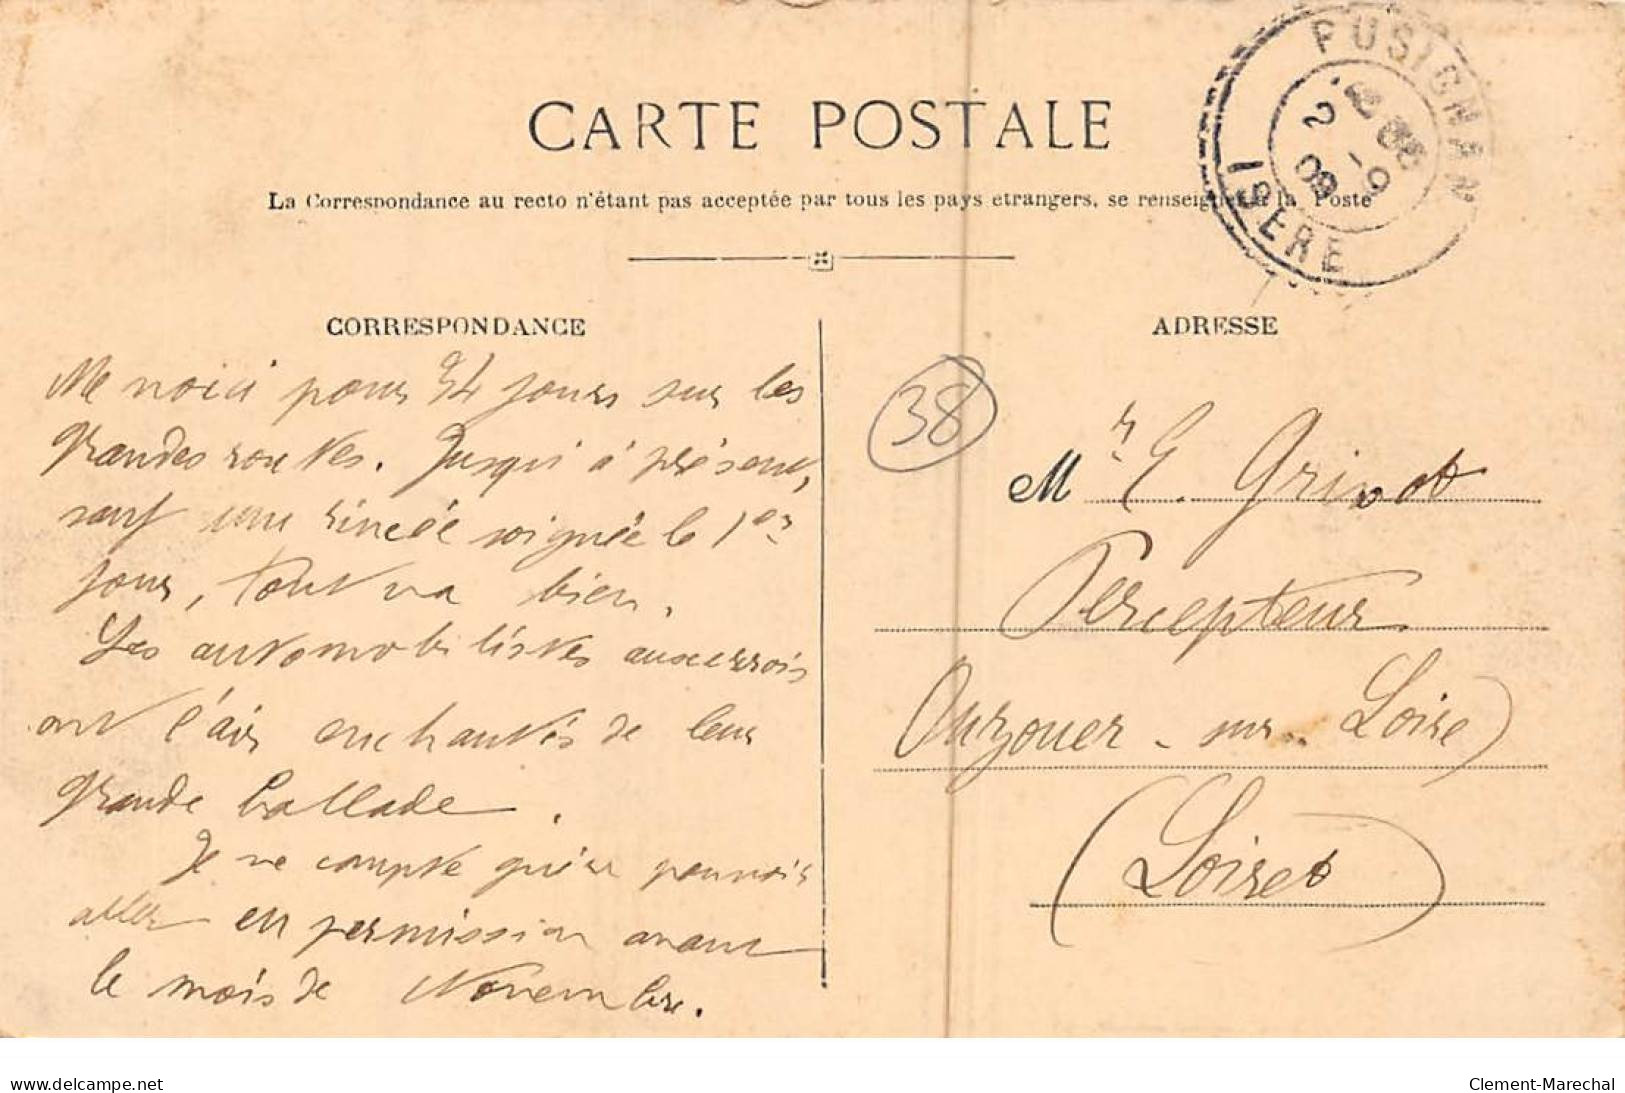 CARTE POSTALE
La Correspondance au recto n'étant pas acceptée par tous les pays etrangers, se renseigner à la Poste
PUSIGNAN
2 -9
09
ISERE
CORRESPONDANCE
Me voici pour 34 jours sur les
grandes routes. Jusqu'à présent,
sauf une rincée soignée le 1er
jour, tout va bien.
Les automobilistes auxerrois
ont l'air enchantés de leur
grande ballade.
Je ne compte guère pouvoir
aller en permission avant
le mois de Novembre.
ADRESSE
38
Mr E. Grivot
Percepteur
Ouzouer-sur-Loire
(Loiret)
www.delcampe.net
Clement-Marechal